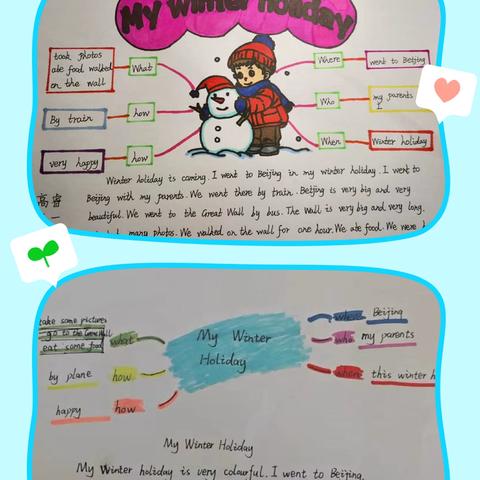 My Winter holiday
took photos
ate food walked
on the wall
What
Where
went to Beijing
By train
how
Who
my parents
I
very happy
how
When
Winter holiday
Winter holiday is coming. I went to Beijing in my winter holiday. I went to
高睿
Beijing with my parents. We went there by train. Beijing is very big and very
beautiful. We went to the Great Wall by bus. The Wall is very big and very long.
many photos. We walked on the wall for one hour. We ate food. We were
take some pictures
go to the Great Wall
eat some food
what
My Winter
Holiday
where
Beijing
who
my parents
by plane
how
when
this winter h
happy
how
My Winter Holiday
My Winter holiday is very colourful. I went to Beijing,